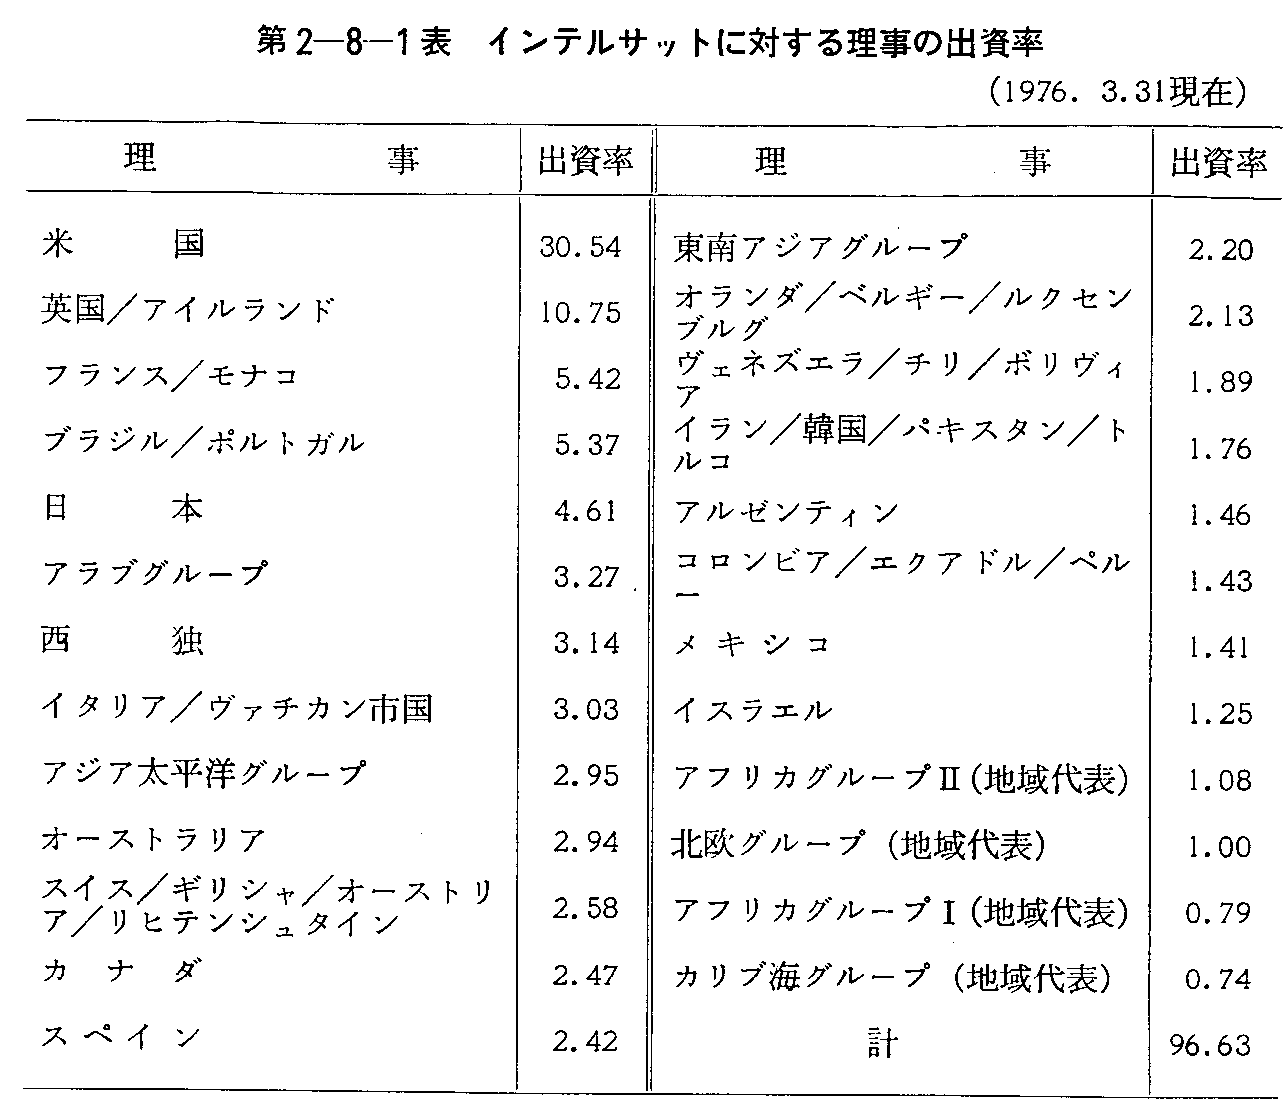 第2—8—1表　インテルサットに対する理事の出資率
(1976. 3.31現在)
理　事　出資率　理　事　出資率
米　国　30.54　東南アジアグループ　2.20
英国/アイルランド　10.75　オランダ/ベルギー/ルクセン
ブルグ　2.13
フランス/モナコ　5.42　ヴェネズエラ/チリ/ボリヴィ
ア　1.89
ブラジル/ポルトガル　5.37　イラン/韓国/パキスタン/ト
ルコ　1.76
日　本　4.61　アルゼンティン　1.46
アラブグループ　3.27　コロンビア/エクアドル/ペル
ー　1.43
西　独　3.14　メキシコ　1.41
イタリア/ヴァチカン市国　3.03　イスラエル　1.25
アジア太平洋グループ　2.95　アフリカグループⅡ(地域代表)　1.08
オーストラリア　2.94　北欧グループ (地域代表)　1.00
スイス/ギリシャ/オーストリ
ア/リヒテンシュタイン　2.58　アフリカグループⅠ(地域代表)　0.79
カ ナ ダ　2.47　カリブ海グループ (地域代表)　0.74
スペイン　2.42　計　96.63